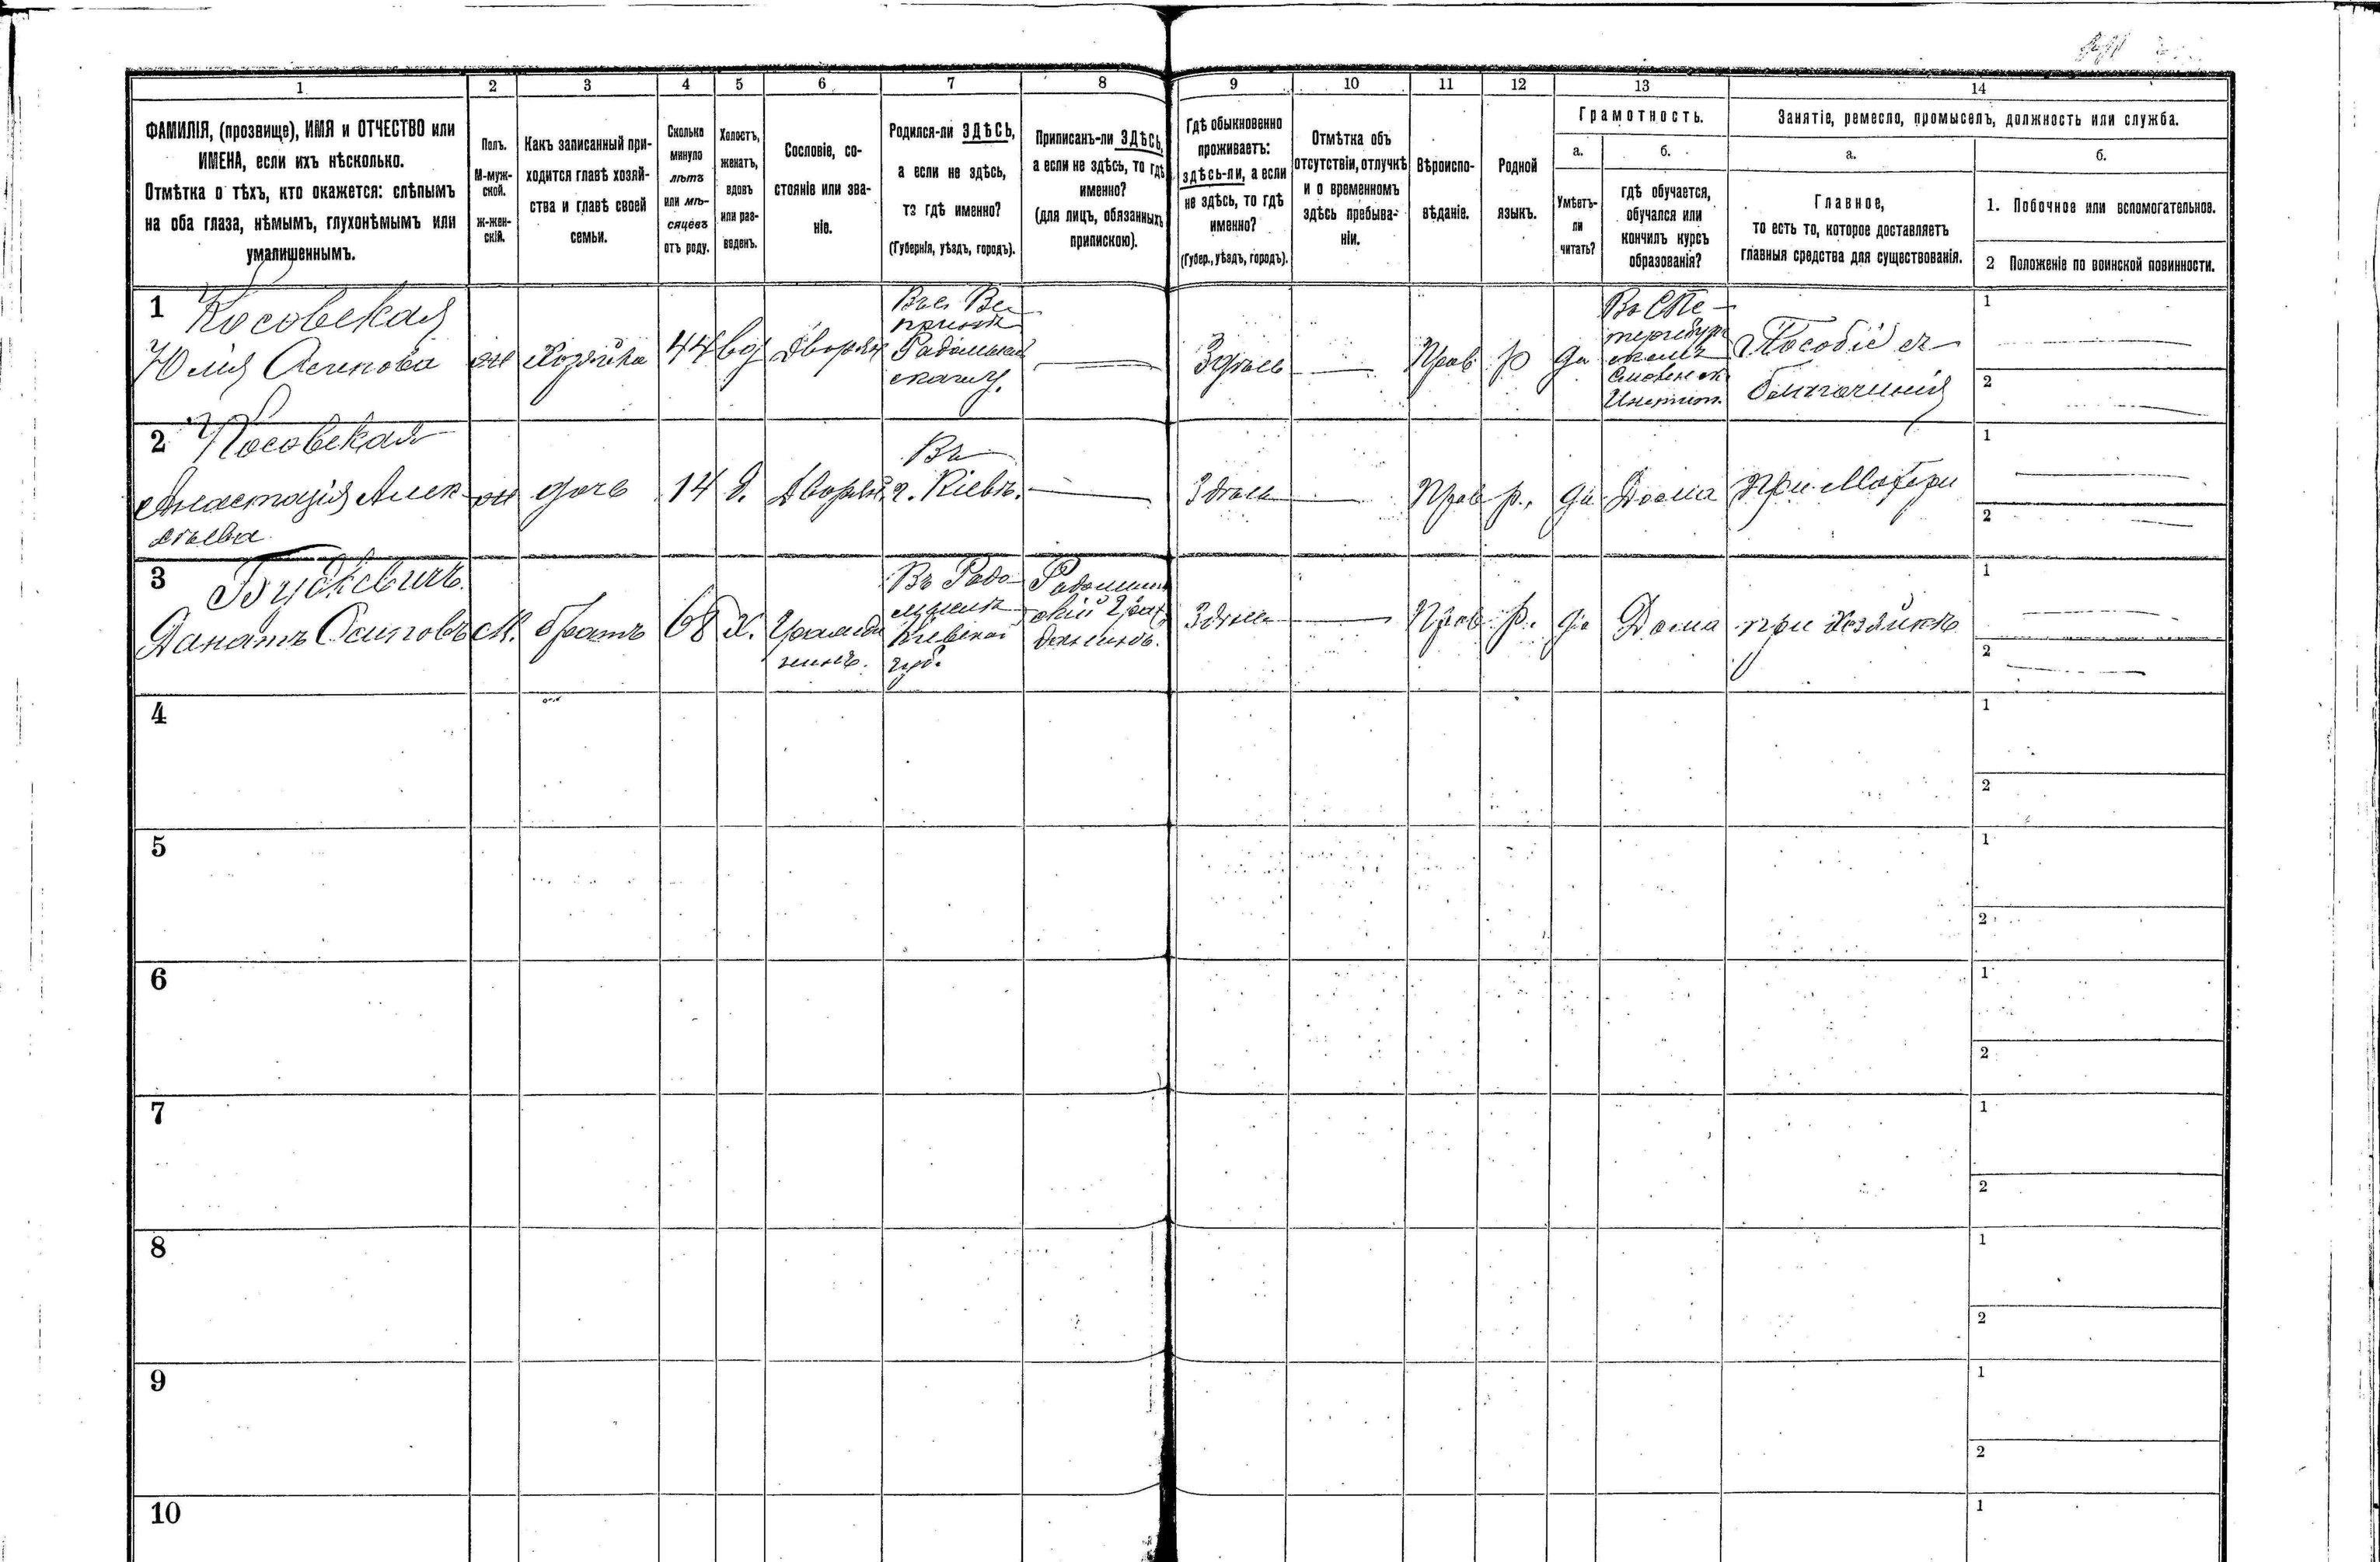 1 2 3 4 5 6 7 8 9 10 11 12 13 14
ФАМИЛІЯ, (прозвище), ИМЯ и ОТЧЕСТВО или
ИМЕНА, если ихъ нѣсколько.
Отмѣтка о тѣхъ, кто окажется: слѣпымъ
на оба глаза, нѣмымъ, глухонѣмымъ или
умалишеннымъ.
Полъ.
М-муж-
ской.
ж-жен-
скій.
Какъ записанный при-
ходится главѣ хозяй-
ства и главѣ своей
семьи.
Сколько
минуло
лѣтъ
или мѣ-
сяцевъ
отъ роду.
Холостъ,
женатъ,
вдовъ
или раз-
веденъ.
Сословіе, со-
стояніе или зва-
ніе.
Родился-ли ЗДѢСЬ,
а если не здѣсь,
то гдѣ именно?
(Губернія, уѣздъ, городъ).
Приписанъ-ли ЗДѢСЬ,
а если не здѣсь, то гдѣ
именно?
(для лицъ, обязанныхъ
припискою).
Гдѣ обыкновенно
проживаетъ:
здѣсь-ли, а если
не здѣсь, то гдѣ
именно?
(Губер., уѣздъ, городъ).
Отмѣтка объ
отсутствіи, отлучкѣ
и о временномъ
здѣсь пребыва-
ніи.
Вѣроиспо-
вѣданіе.
Родной
языкъ.
Грамотность.
а.
Умѣетъ-
ли
читать?
б.
гдѣ обучается,
обучался или
кончилъ курсъ
образованія?
Занятіе, ремесло, промыселъ, должность или служба.
а.
Главное,
то есть то, которое доставляетъ
главныя средства для существованія.
б.
1. Побочное или вспомогательное.
2 Положеніе по воинской повинности.
1 Косовская
Юлія Осипова
ж
Хозяйка
44
вд
Дворян
Здѣсь
Прав
р
да
Смоленск
Инстит.
Пособіе
1
2
2 Косовская
Анастасія Алек
сѣева
ж
дочь
14
д.
Дворян.
Въ
г. Кіевѣ.
Здѣсь
Прав
р.
да
Дома
При Матери
1
2
3 Буткевичъ
Данатъ Осиповъ
М.
братъ
68
х.
Гражда
нинъ.
Въ Радо
мыслѣ
Кіевской
губ.
Радомысль
скій Граж
данинъ.
Здѣсь
Прав
р.
да
Дома
при хозяйкѣ
1
2
4
1
2
5
1
2
6
1
2
7
1
2
8
1
2
9
1
2
10
1